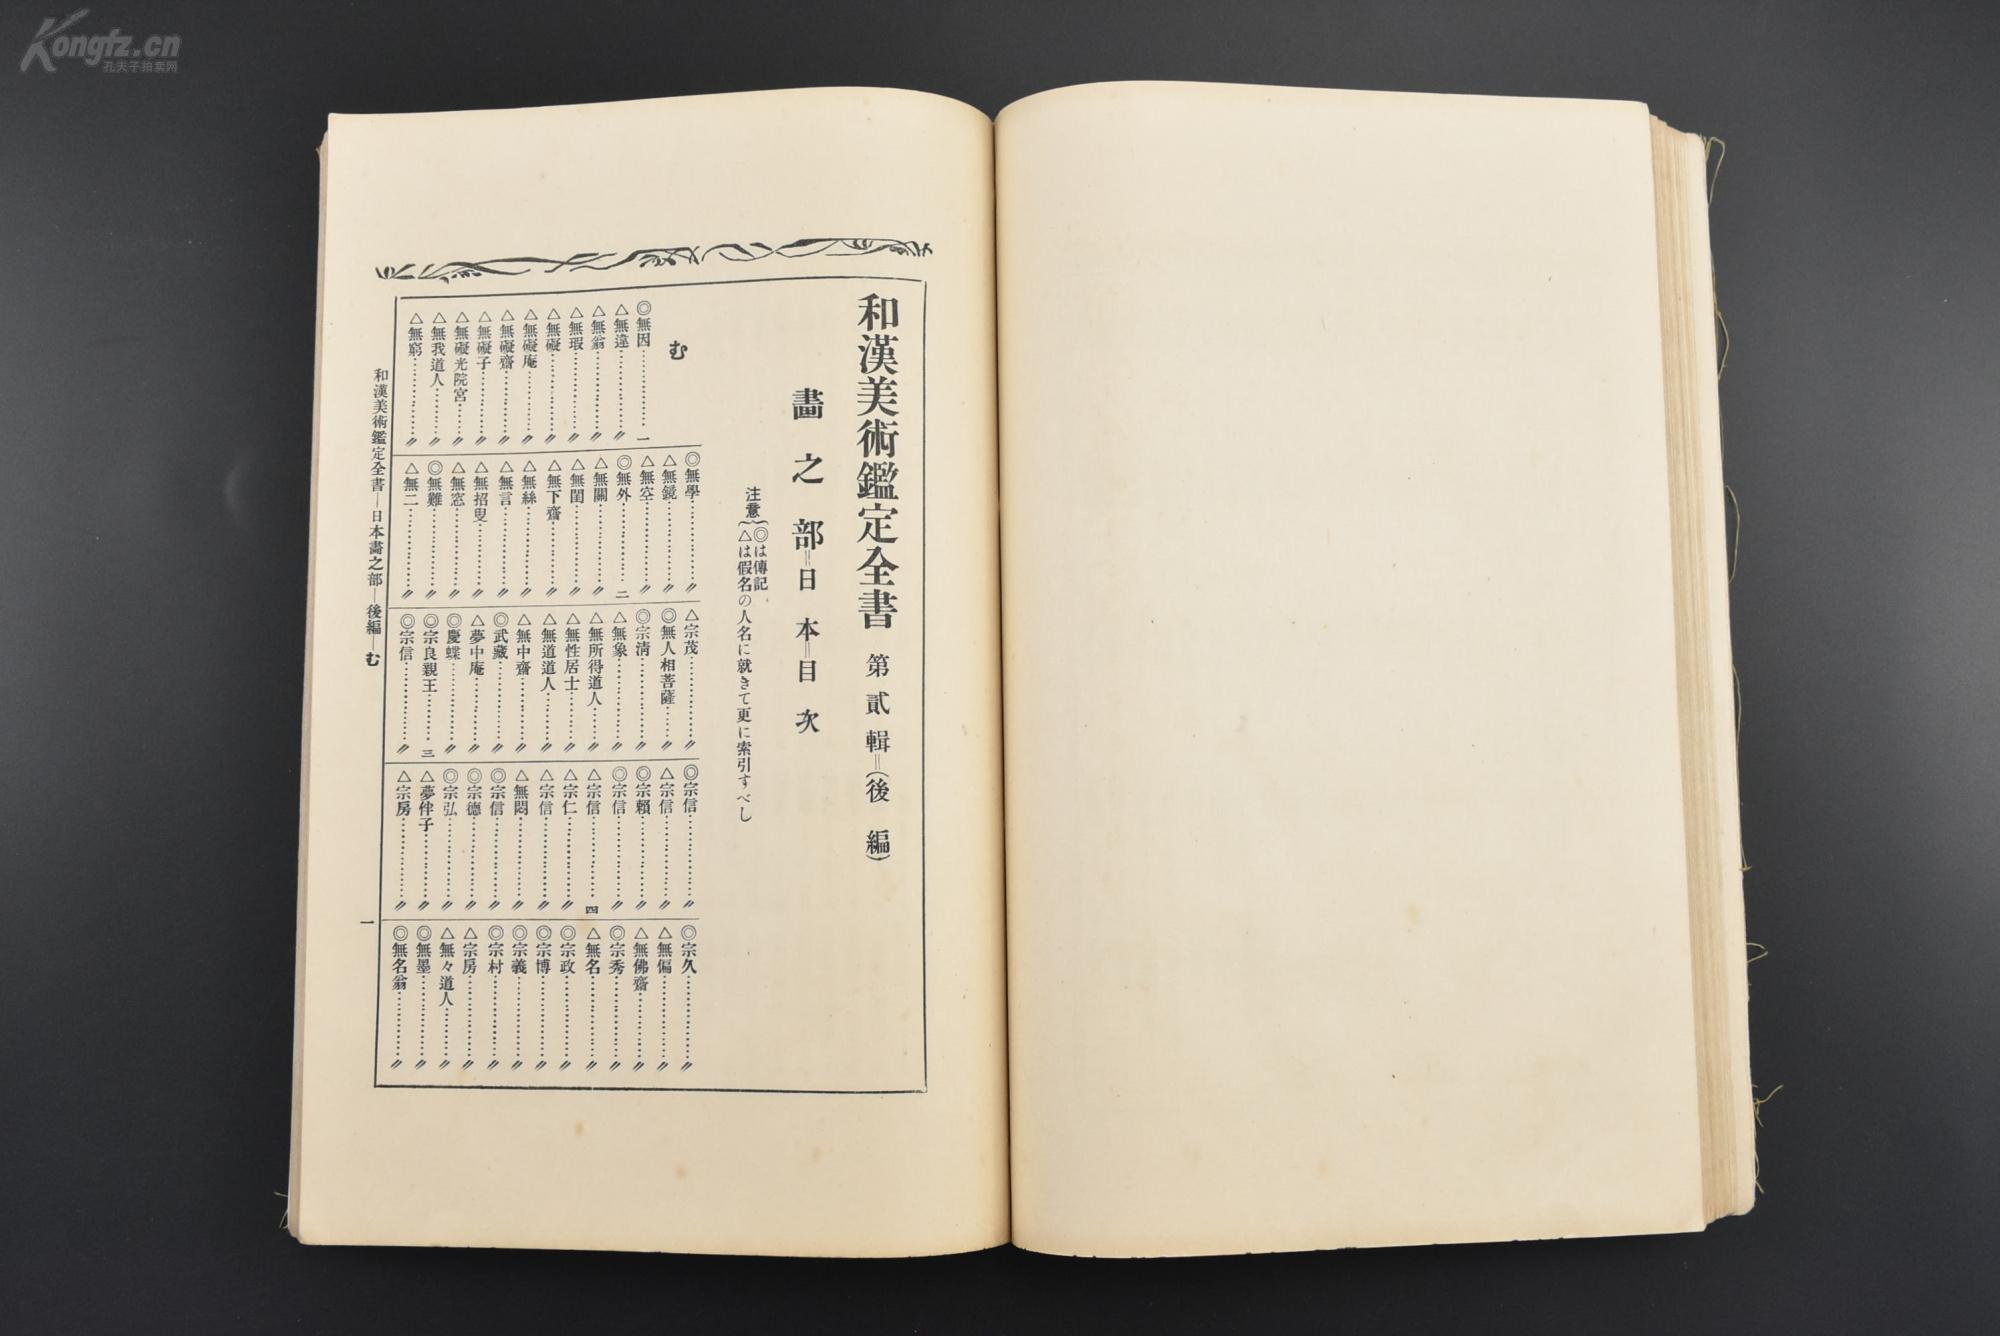 Kongfz.cn
孔夫子拍卖网
和漢美術鑑定全書 第貳輯=(後編)
畫之部=日本=目次
注意{◎は傳記
△は假名の人名に就きて更に索引すべし
む
◎無因…………一
△無違…………〃
△無翁…………〃
△無瑕…………〃
△無礙…………〃
△無礙庵…………〃
△無礙齋…………〃
△無礙子…………〃
△無礙光院宮…………〃
△無我道人…………〃
△無窮…………〃
◎無學…………〃
△無鏡…………〃
△無空…………〃
◎無外…………二
△無關…………〃
△無閏…………〃
△無下齋…………〃
△無絲…………〃
△無言…………〃
△無招叟…………〃
△無窓…………〃
◎無難…………〃
△無二…………〃
△宗茂…………〃
◎無人相菩薩…………〃
◎宗清…………〃
△無象…………〃
△無所得道人…………〃
△無性居士…………〃
△無道道人…………〃
△無中齋…………〃
◎武藏…………〃
△夢中庵…………〃
◎慶蝶…………〃
◎宗良親王…………三
◎宗信…………〃
◎宗信…………〃
△宗信…………〃
◎宗賴…………〃
◎宗信…………〃
△宗信…………四
△宗仁…………〃
△宗信…………〃
△無悶…………〃
◎宗信…………〃
◎宗德…………〃
◎宗弘…………〃
△夢伴子…………〃
△宗房…………〃
◎宗久…………〃
△無偏…………〃
△無佛齋…………〃
◎宗秀…………〃
△無名…………〃
◎宗政…………〃
◎宗博…………〃
◎宗義…………〃
◎宗村…………〃
△宗房…………〃
△無々道人…………〃
◎無墨…………〃
◎無名翁…………〃
和漢美術鑑定全書—日本畫之部—後編—む
一